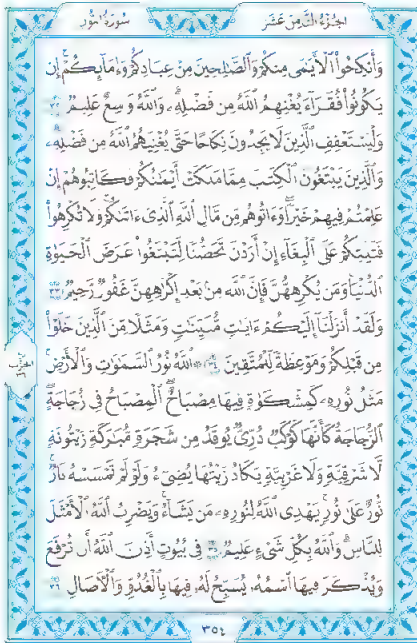 سُورَةُ النُّورِ الجُزْءُ الثَّامِنَ عَشَرَ
وَأَنكِحُوا۟ ٱلْأَيَـٰمَىٰ مِنكُمْ وَٱلصَّـٰلِحِينَ مِنْ عِبَادِكُمْ وَإِمَآئِكُمْ ۚ إِن
يَكُونُوا۟ فُقَرَآءَ يُغْنِهِمُ ٱللَّهُ مِن فَضْلِهِۦ ۗ وَٱللَّهُ وَٰسِعٌ عَلِيمٌ ٣٢
وَلْيَسْتَعْفِفِ ٱلَّذِينَ لَا يَجِدُونَ نِكَاحًا حَتَّىٰ يُغْنِيَهُمُ ٱللَّهُ مِن فَضْلِهِۦ ۗ
وَٱلَّذِينَ يَبْتَغُونَ ٱلْكِتَـٰبَ مِمَّا مَلَكَتْ أَيْمَـٰنُكُمْ فَكَاتِبُوهُمْ إِنْ
عَلِمْتُمْ فِيهِمْ خَيْرًا ۖ وَءَاتُوهُم مِّن مَّالِ ٱللَّهِ ٱلَّذِىٓ ءَاتَىٰكُمْ ۚ وَلَا تُكْرِهُوا۟
فَتَيَـٰتِكُمْ عَلَى ٱلْبِغَآءِ إِنْ أَرَدْنَ تَحَصُّنًا لِّتَبْتَغُوا۟ عَرَضَ ٱلْحَيَوٰةِ
ٱلدُّنْيَا ۚ وَمَن يُكْرِههُّنَّ فَإِنَّ ٱللَّهَ مِنۢ بَعْدِ إِكْرَٰهِهِنَّ غَفُورٌ رَّحِيمٌ ٣٣
وَلَقَدْ أَنزَلْنَآ إِلَيْكُمْ ءَايَـٰتٍ مُّبَيِّنَـٰتٍ وَمَثَلًا مِّنَ ٱلَّذِينَ خَلَوْا۟
مِن قَبْلِكُمْ وَمَوْعِظَةً لِّلْمُتَّقِينَ ٣٤ ۞ ٱللَّهُ نُورُ ٱلسَّمَـٰوَٰتِ وَٱلْأَرْضِ ۚ
مَثَلُ نُورِهِۦ كَمِشْكَوٰةٍ فِيهَا مِصْبَاحٌ ۖ ٱلْمِصْبَاحُ فِى زُجَاجَةٍ ۖ
ٱلزُّجَاجَةُ كَأَنَّهَا كَوْكَبٌ دُرِّىٌّ يُوقَدُ مِن شَجَرَةٍ مُّبَـٰرَكَةٍ زَيْتُونَةٍ
لَّا شَرْقِيَّةٍ وَلَا غَرْبِيَّةٍ يَكَادُ زَيْتُهَا يُضِىٓءُ وَلَوْ لَمْ تَمْسَسْهُ نَارٌ ۚ
نُّورٌ عَلَىٰ نُورٍ ۗ يَهْدِى ٱللَّهُ لِنُورِهِۦ مَن يَشَآءُ ۚ وَيَضْرِبُ ٱللَّهُ ٱلْأَمْثَـٰلَ
لِلنَّاسِ ۗ وَٱللَّهُ بِكُلِّ شَىْءٍ عَلِيمٌ ٣٥ فِى بُيُوتٍ أَذِنَ ٱللَّهُ أَن تُرْفَعَ
وَيُذْكَرَ فِيهَا ٱسْمُهُۥ يُسَبِّحُ لَهُۥ فِيهَا بِٱلْغُدُوِّ وَٱلْـَٔاصَالِ ٣٦
٣٥٤